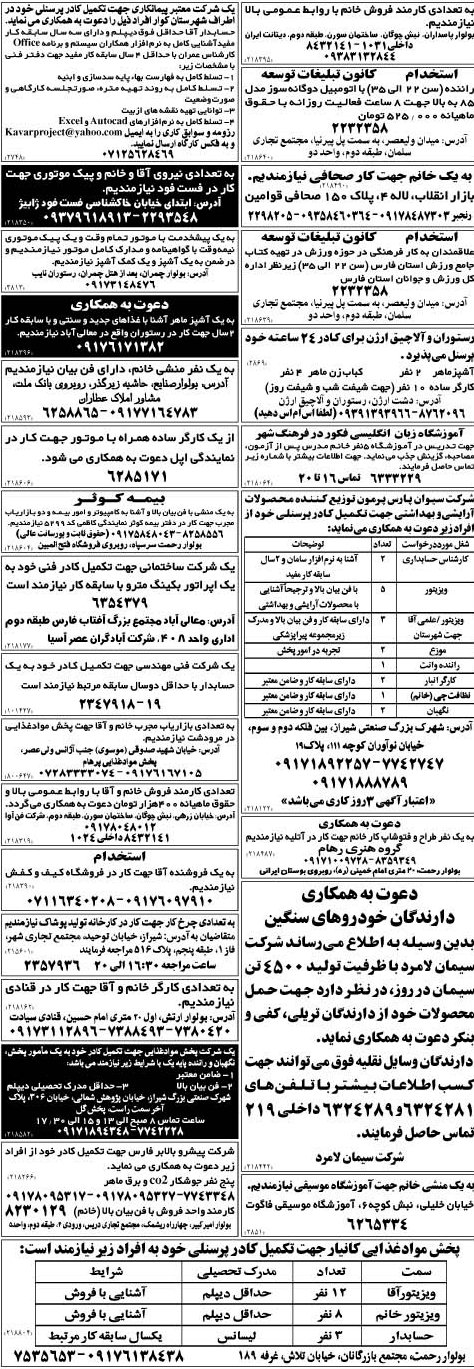 به تعدادی کارمند فروش خانم با روابط عمومی بالا
نیازمندیم.
بولوار پاسداران، نبش چوگان، ساختمان سورن، طبقه دوم، دیتانت ایران
داخلی ۱۰۳۱-۸۴۳۲۱۴۱
۰۹۳۸۳۱۳۲۸۴۴
استخدام کانون تبلیغات توسعه
راننده (سن ۲۲ الی ۳۵) با اتومبیل دوگانه‌سوز مدل
۸۵ به بالا جهت ۸ ساعت فعالیت روزانه با حقوق
ماهیانه ۵۲۵,۰۰۰ تومان
۲۲۳۲۳۵۸
آدرس: میدان ولیعصر، به سمت پل پیرنیا، مجتمع تجاری
سلمان، طبقه دوم، واحد دو
به یک خانم جهت کار صحافی نیازمندیم.
بازار انقلاب، لاله ۴، پلاک ۱۵۰ صحافی قوامین
۰۹۱۷۸۴۸۷۳۰۳-۰۹۳۵۸۴۶۰۳۶۴-۲۲۹۸۲۰۵
استخدام کانون تبلیغات توسعه
علاقمندان به کار فرهنگی در حوزه ورزش در تهیه کتاب
جامع ورزش استان فارس (سن ۲۲ الی ۳۵) زیرنظر اداره
کل ورزش و جوانان استان فارس
۲۲۳۲۳۵۸
آدرس: میدان ولیعصر، به سمت پل پیرنیا، مجتمع تجاری
سلمان، طبقه دوم، واحد دو
رستوران و آلاچیق ارژن برای کادر ۲۴ ساعته خود
پرسنل می‌پذیرد.
آشپز ماهر ۲ نفر کباب زن ماهر ۴ نفر
کارگر ساده ۱۰ نفر (جهت شیفت شب و شیفت روز)
آدرس: دشت ارژن، رستوران و آلاچیق ارژن
۸۷۶۲۰۹۶-۰۹۳۹۱۳۹۳۹۶۶ (لطفا اس ام اس دهید)
آموزشگاه زبان انگلیسی فکور در فرهنگ شهر
جهت تدریس در آموزشگاه ۵ نفر خانم مدرس پس از آزمون،
مصاحبه، گزینش جذب می‌نماید. جهت اطلاعات بیشتر با شماره زیر
تماس حاصل فرمایند. ۶۳۳۳۲۲۹ تماس ۱۶ تا ۲۰
شرکت سیوان پارس پرمون توزیع کننده محصولات
آرایشی و بهداشتی جهت تکمیل کادر پرسنلی خود از
افراد زیر دعوت به همکاری می‌نماید:
شغل مورد درخواست تعداد توضیحات
کارشناس حسابداری ۲ آشنا به نرم افزار سامان و ۲ سال سابقه کار مفید
ویزیتور ۵ با فن بیان بالا و ترجیحاً آشنایی با محصولات آرایشی و بهداشتی
ویزیتور/علمی آقا جهت شهرستان ۳ دارای سابقه کار و فن بیان بالا و مدرک زیرمجموعه پیراپزشکی
موزع ۲ تجربه در امور پخش
راننده وانت ۱
کارگر انبار ۲ دارای سابقه کار و ضامن معتبر
نظافت‌چی (خانم) ۱ دارای سابقه کار و ضامن معتبر
نگهبان ۲ دارای سابقه کار و ضامن معتبر
آدرس: شهرک بزرگ صنعتی شیراز، بین فلکه دوم و سوم،
خیابان نوآوران کوچه ۱۱۱، پلاک ۱۹
۷۷۴۲۷۴۷-۰۹۱۷۱۸۹۲۲۵۷
۰۹۱۷۱۸۸۸۷۸۹
«اعتبار آگهی ۳ روز کاری می‌باشد»
دعوت به همکاری
به یک نفر طراح و فتوشاپ کار خانم جهت کار در آتلیه نیازمندیم
گروه هنری رهام
۸۳۵۹۳۴۹-۰۹۱۷۱۰۰۹۷۲۸
بولوار رحمت، ۲۰ متری امام خمینی (ره)، روبروی بوستان ایرانی
دعوت به همکاری
دارندگان خودروهای سنگین
بدین وسیله به اطلاع می‌رساند شرکت
سیمان لامرد با ظرفیت تولید ۴۵۰۰ تن
سیمان در روز، در نظر دارد جهت حمل
محصولات خود از دارندگان تریلی، کفی و
بنکر دعوت به همکاری نماید.
دارندگان وسایل نقلیه فوق می‌توانند جهت
کسب اطلاعات بیشتر با تلفن‌های
۶۳۲۴۲۸۱ و ۶۳۲۴۲۸۹ داخلی ۲۱۹
تماس حاصل فرمایند.
شرکت سیمان لامرد
به یک منشی خانم جهت آموزشگاه موسیقی نیازمندیم.
خیابان خلیلی، نبش کوچه ۶، آموزشگاه موسیقی فاگوت
۶۲۶۵۳۳۴
یک شرکت معتبر پیمانکاری جهت تکمیل کادر پرسنلی خود در
اطراف شهرستان کوار افراد ذیل را دعوت به همکاری می‌نماید.
حسابدار آقا حداقل فوق دیپلم و دارای سه سال سابقه کار
مفید آشنایی کامل به نرم افزار همکاران سیستم و برنامه Office
کارشناس عمران با حداقل ۴ سال سابقه کار مفید جهت دفتر فنی
با مشخصات زیر:
۱- تسلط کامل به فهرست بها، پایه سدسازی و ابنیه
۲- تسلط کامل به روند تهیه متره، صورتجلسه کارگاهی و
صورت وضعیت
۳- توانایی تهیه نقشه های ازبیت
۴- تسلط کامل به نرم افزارهای Autocad و Excel
رزومه و سوابق کاری را به ایمیل Kavarproject@yahoo.com
و به فکس کارگاه ارسال نماید.
۰۷۱۲۵۶۲۸۴۶۹
به تعدادی نیروی آقا و خانم و پیک موتوری جهت
کار در فست فود نیازمندیم.
آدرس: ابتدای خیابان خاکشناسی فست فود ژابیژ
۲۲۹۳۵۴۸-۰۹۳۷۹۶۱۸۹۱۳
به یک پیشخدمت با موتور تمام وقت و یک پیک موتوری
نیمه وقت با گواهینامه و مدارک کامل موتور نیازمندیم و
در ضمن به یک آشپز و یک کمک آشپز نیازمندیم.
آدرس: بولوار چمران، بعد از هتل چمران، رستوران نایب
۰۹۱۷۳۱۴۸۴۷۶
دعوت به همکاری
به یک آشپز ماهر آشنا با غذاهای جدید و سنتی و با سابقه کار
۲ سال جهت کار در رستوران واقع در معالی آباد نیازمندیم.
۰۹۱۷۶۱۷۱۳۸۲
به یک نفر منشی خانم، دارای فن بیان نیازمندیم
آدرس: بولوار صنایع، حاشیه زیرگذر، روبروی بانک ملت،
مشاور املاک عطاران
۰۹۱۷۷۱۶۴۷۸۳-۶۲۵۸۸۶۵
از یک کارگر ساده همراه با موتور جهت کار در
نمایندگی اپل دعوت به همکاری می شود.
۶۲۸۵۱۷۱
بیمه کوثر
به یک منشی با فن بیان بالا و آشنا به کامپیوتر و امور بیمه و دو بازاریاب
مجرب جهت کار در دفتر بیمه کوثر نمایندگی کاظمی کد ۵۲۹۹ نیازمندیم.
۸۲۵۸۵۵۶-۰۹۱۷۵۸۴۸۰۴۳ (حقوق ثابت و پورسانت عالی)
بولوار رحمت، سرسپاه، روبروی فروشگاه فتح‌المبین
یک شرکت ساختمانی جهت تکمیل کادر فنی خود به
یک اپراتور بکینگ مترو با سابقه کار نیازمند است
۶۳۵۴۳۷۹
آدرس: معالی آباد مجتمع بزرگ آفتاب فارس طبقه دوم
اداری واحد ۴۰۸، شرکت آبادگران عصر آسیا
یک شرکت فنی مهندسی جهت تکمیل کادر خود به یک
حسابدار با حداقل دوسال سابقه مرتبط نیازمند است
۲۳۴۷۹۱۸-۱۹
تعدادی بازاریاب مجرب خانم و آقا جهت پخش موادغذایی
در مرودشت نیازمندیم.
آدرس: خیابان شهید صدوقی (موسوی) جنب آژانس ولی عصر،
پخش موادغذایی پرهام
۰۹۱۷۶۱۶۷۱۰۵-۰۷۲۸۳۳۳۳۰۷۴
تعدادی کارمند فروش خانم و آقا با روابط عمومی بالا و
حقوق ماهیانه ۴۰۰ هزار تومان دعوت به همکاری می‌گردد.
آدرس: خیابان زرهی، نبش چوگان، ساختمان سورن، طبقه دوم، شرکت فن آوا
۰۹۱۷۸۰۴۸۰۱۲
۸۴۳۲۱۴۱ داخلی ۱۰۲۴
استخدام
به یک فروشنده آقا جهت کار در فروشگاه کیف و کفش
نیازمندیم.
۰۹۱۷۶۰۹۷۹۱۰-۰۷۱۱۶۳۴۰۲۰۸
به تعدادی چرخ کار جهت کار در کارخانه تولید پوشاک نیازمندیم
متقاضیان به آدرس: شیراز، خیابان توحید، مجتمع تجاری شهر،
فاز ۱، طبقه پنجم، پلاک ۵۱۶ مراجعه فرمایند
ساعت مراجعه ۱۶:۳۰ الی ۲۰ ۲۳۵۷۹۳۶
به تعدادی کارگر خانم و آقا جهت کار در قنادی
نیازمندیم.
آدرس: بولوار ارتش، اول ۲۰ متری امام حسین، قنادی سیادت
۷۳۸۰۴۲۰-۷۳۸۸۴۹۳-۰۹۱۷۳۱۱۲۸۹۶
یک شرکت پخش موادغذایی جهت تکمیل کادر خود به یک مأمور پخش،
نگهبان و راننده پایه یک با شرایط زیر نیازمند می باشد:
۱- ضامن معتبر
۲- فن بیان بالا ۳- حداقل مدرک تحصیلی دیپلم
شهرک صنعتی بزرگ شیراز، خیابان پژوهش شمالی، خیابان ۳۰۶، پلاک
آخر سمت راست، پخش گل
ساعت تماس ۸ صبح الی ۱۳ و ۱۵ الی ۱۷/۳۰
۷۷۴۲۲۲۸-۰۹۱۷۱۸۹۴۳۴۸
شرکت پیشرو بالابر فارس جهت تکمیل کادر خود از افراد
زیر دعوت به همکاری می نماید.
پنج نفر جوشکار co2 و برق ماهر
۷۷۴۳۳۴۸-۰۹۱۷۸۰۹۵۳۲۷-۰۹۱۷۸۰۹۵۳۱۷
کارمند واحد فروش با فن بیان بالا (خانم) ۸۲۳۰۱۲۹
بولوار امیرکبیر، چهارراه ریشمک، مجتمع تجاری دریس، ورودی ۲، طبقه دوم، واحد
پخش موادغذایی کانیار جهت تکمیل کادر پرسنلی خود به افراد زیر نیازمند است:
سمت تعداد مدرک تحصیلی شرایط
ویزیتور آقا ۱۲ نفر حداقل دیپلم آشنایی با فروش
ویزیتور خانم ۸ نفر حداقل دیپلم آشنایی با فروش
حسابدار ۳ نفر لیسانس یکسال سابقه کار مرتبط
بولوار رحمت، مجتمع بازرگانان، خیابان تلاش، غرفه ۱۸۹ ۰۹۱۷۶۱۳۸۴۳۸-۷۵۳۵۶۵۳